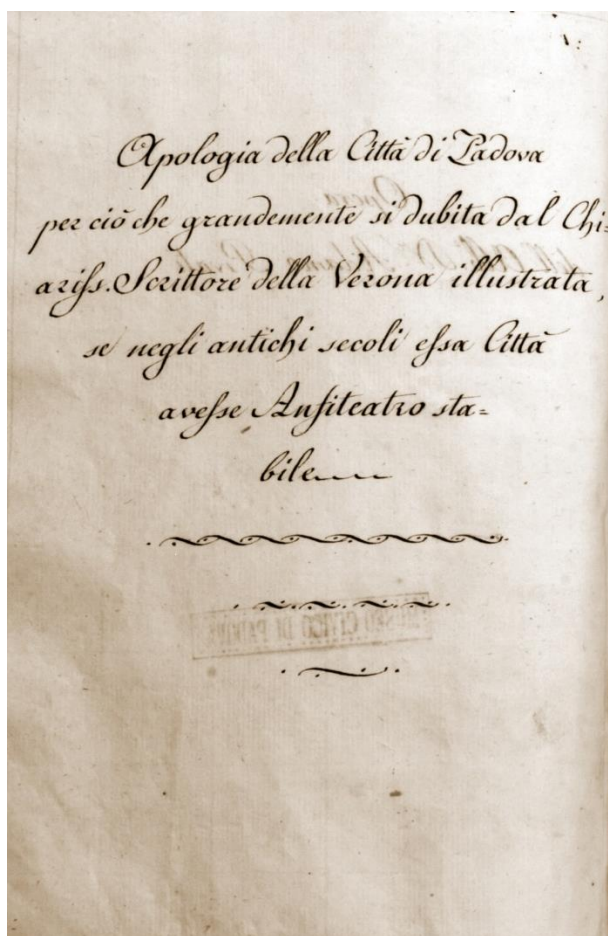 Apologia della Città di Padova
per ciò che grandemente si dubita dal Chi=
ariss. Scrittore della Verona illustrata,
se negli antichi secoli essa Città
avesse Anfiteatro sta=
bile
MUSEO CIVICO DI PADOVA